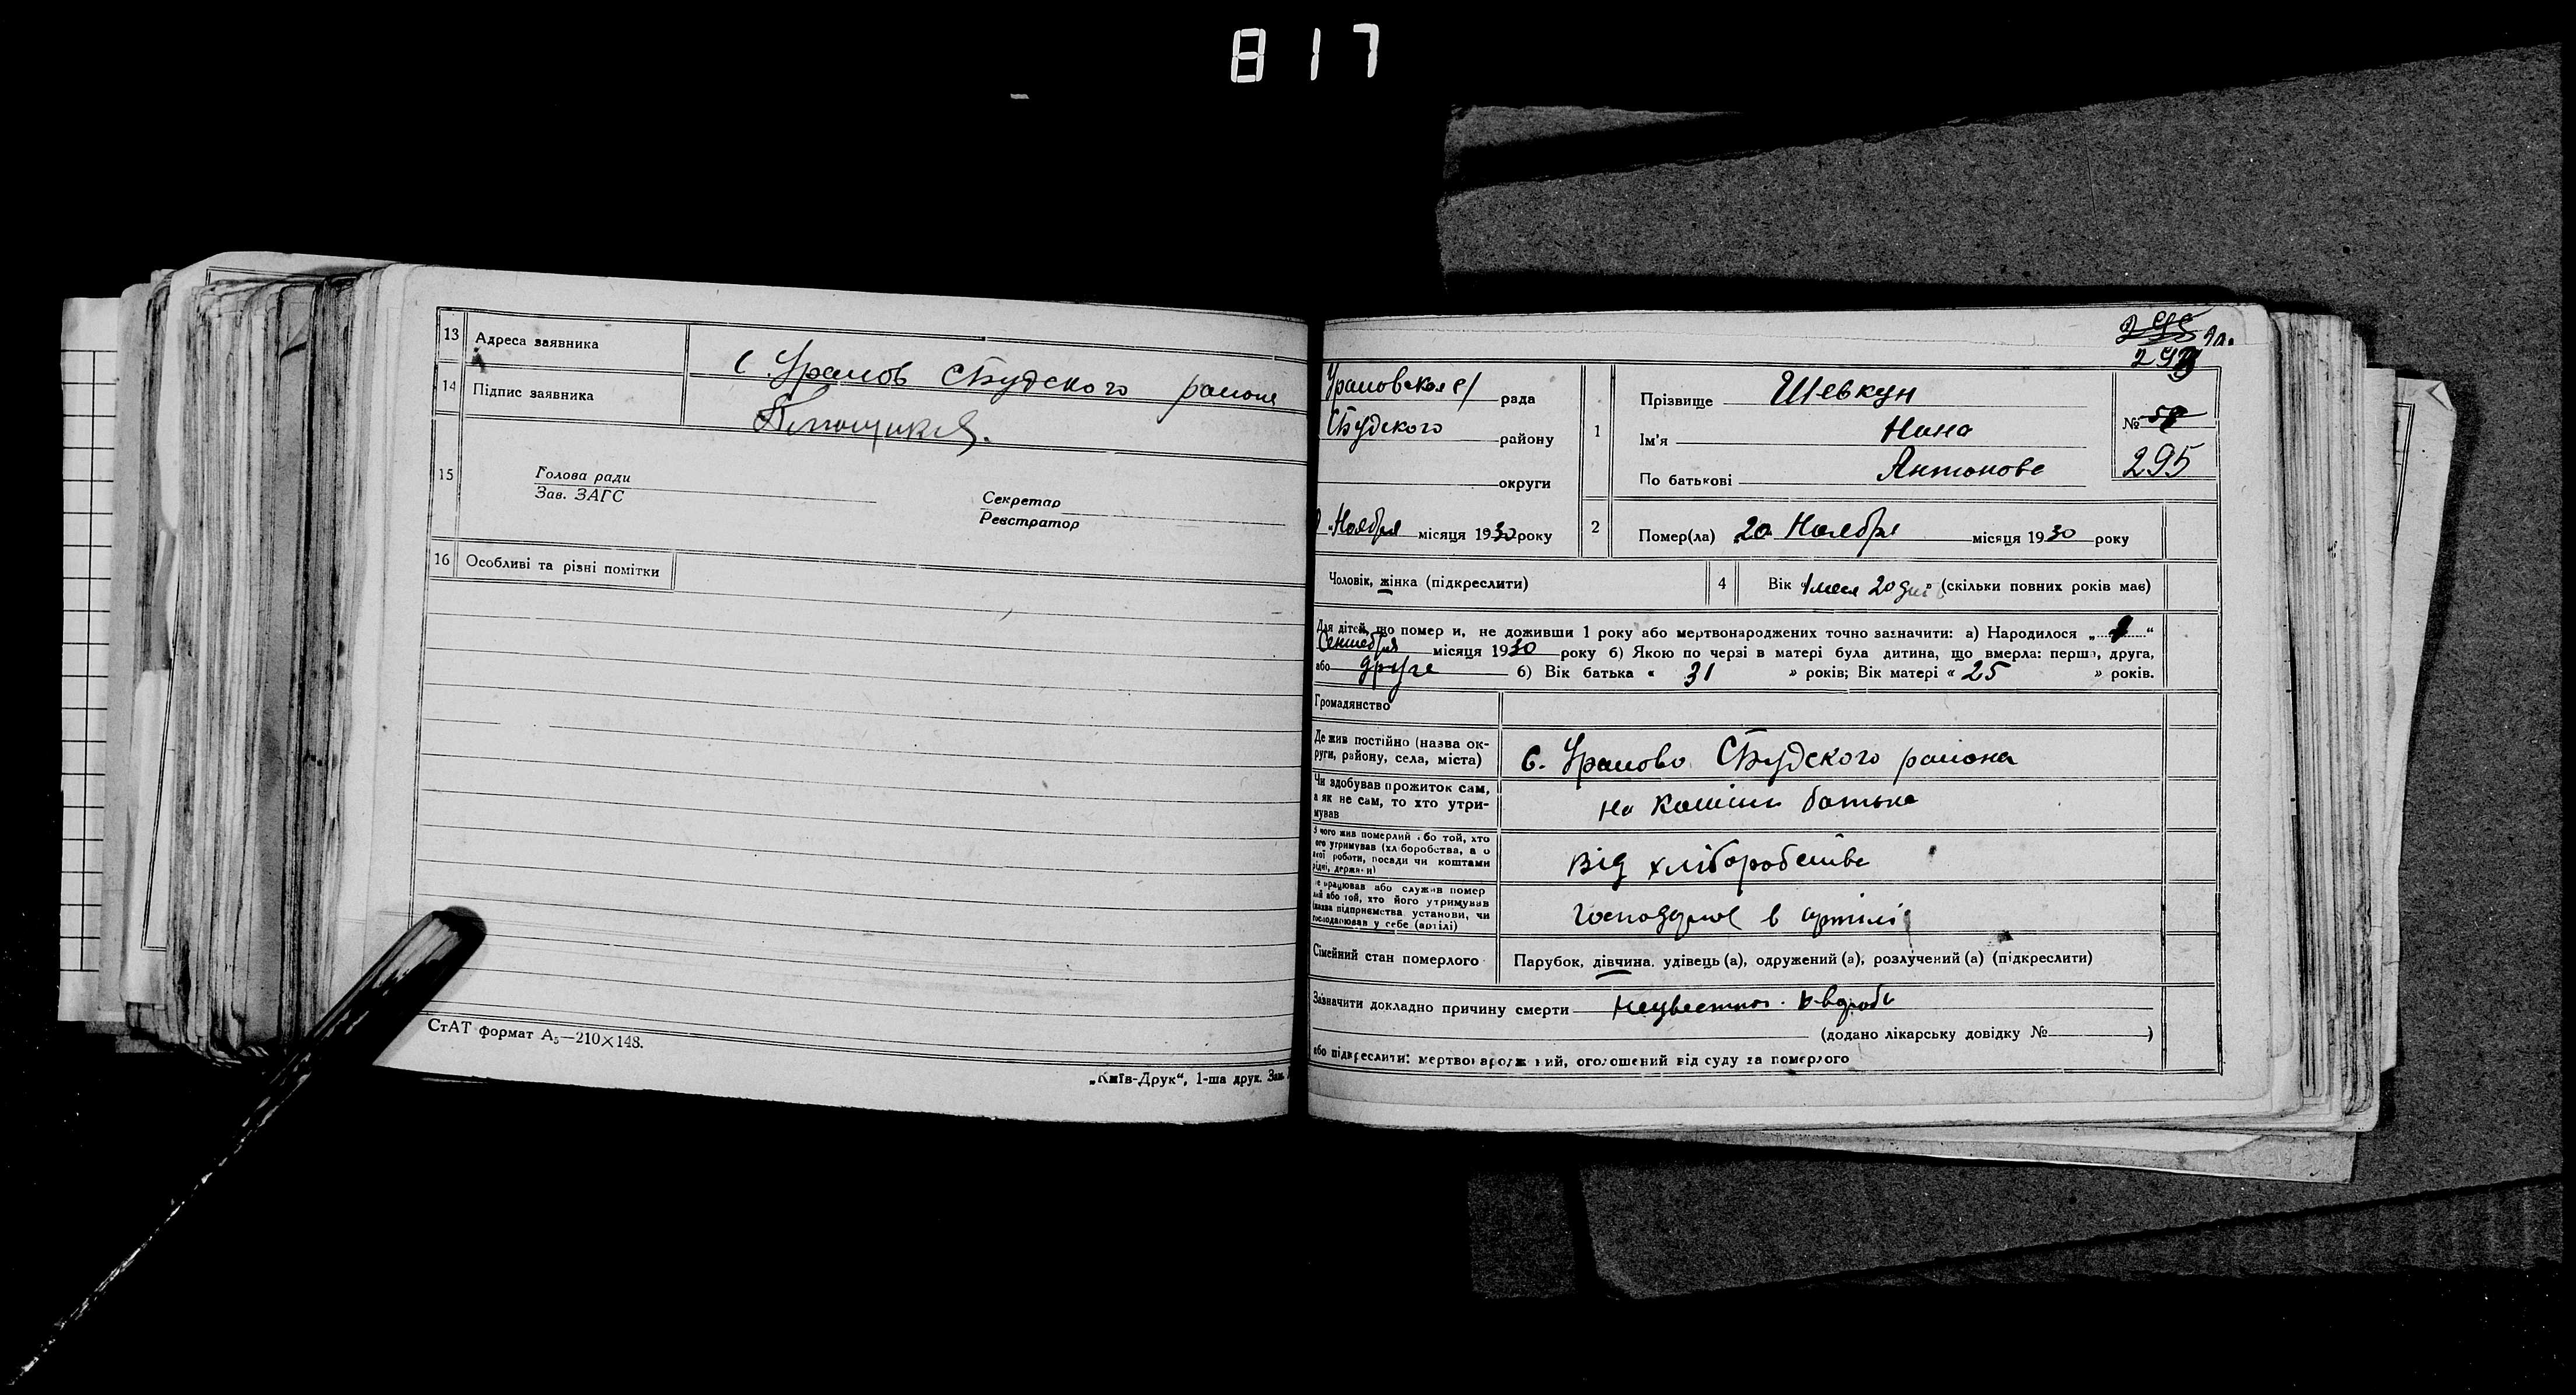 817
13 Адреса заявника
с. Урамов СБудского района
14 Підпис заявника
15
Голова ради
Зав. ЗАГС
Секретар
Реєстратор
16 Особливі та різні помітки
СтАТ формат А₅—210×148.
„Київ-Друк“, 1-ша друк. Зам.
295
Урамовская с/ рада
СБудского району
округи
Ноября місяця 1930 року
1
Прізвище Шевкун
Ім'я Нина
По батькові Антонова
№
295
2 Помер(ла) 20 Ноября місяця 1930 року
Чоловік, жінка (підкреслити)
4 Вік „1 меся 20 дні“ (скільки повних років має)
Для дітей, що помер и, не доживши 1 року або мертвонароджених точно зазначити: а) Народилося „ “
Сентября місяця 1930 року б) Якою по черзі в матері була дитина, що вмерла: перша, друга,
або друга б) Вік батька « 31 » років; Вік матері « 25 » років.
Громадянство
Де жив постійно (назва ок-
руги, району, села, міста)
с. Урамово СБудского района
Чи здобував прожиток сам,
а як не сам, то хто утри-
мував
на кошти батька
З чого жив померлий або той, хто
його утримував (хліборобства, а о
якої роботи, посади чи коштами
рідні, держави)
від хліборобства
Де працював або служив помер
лий або той, хто його утримував
(назва підприємства, установи, чи
господарював у себе (артілі)
господарює в артілі
Сімейний стан померлого
Парубок, дівчина, удівець (а), одружений (а), розлучений (а) (підкреслити)
Зазначити докладно причину смерти
(додано лікарську довідку № )
або підкреслити: мертвонароджений, оголошений від суду за померлого